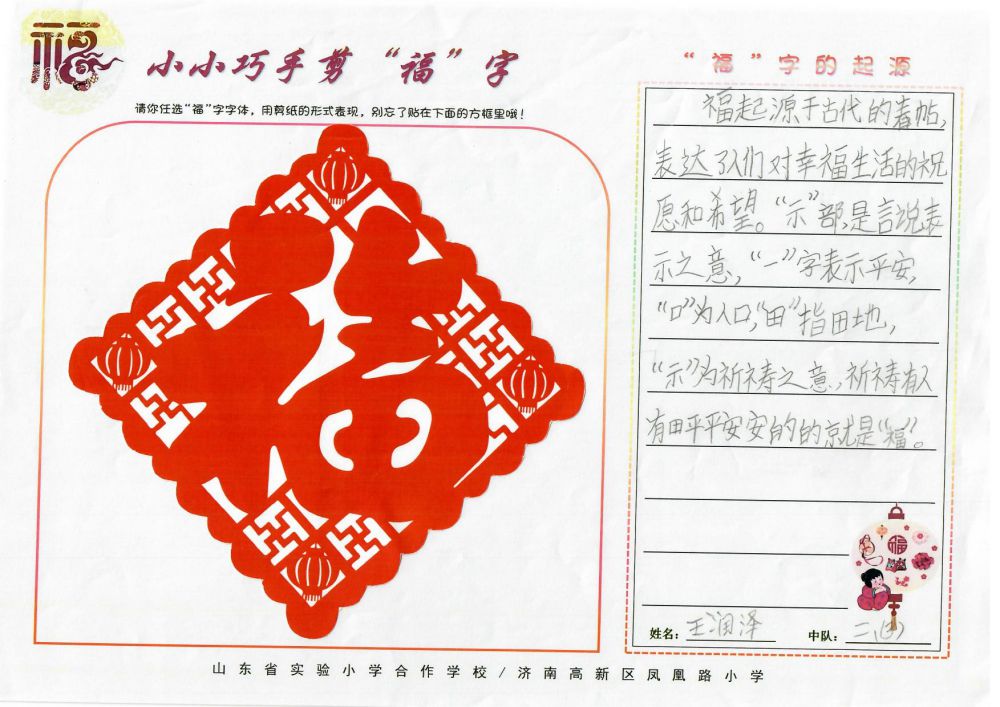 福
小小巧手剪“福”字
请你任选“福”字字体，用剪纸的形式表现，别忘了贴在下面的方框里哦！
福
“福”字的起源
福起源于古代的春帖，
表达了人们对幸福生活的祝
愿和希望。“示”部，是言说表
示之意，“一”字表示平安，
“口”为人口，“田”指田地，
“示”为祈祷之意，祈祷有人
有田平平安安的的就是“福”。
福
姓名：王润泽
中队：二、(3)
山东省实验小学合作学校/济南高新区凤凰路小学